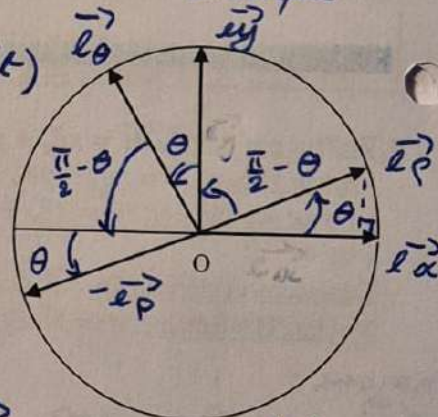 t)
$\vec{e_\theta}$
$\vec{e_y}$
$\frac{\pi}{2} - \theta$
θ
$\frac{\pi}{2} - \theta$
$\vec{e_\rho}$
θ
θ
O
$\vec{e_x}$
$-\vec{e_\rho}$